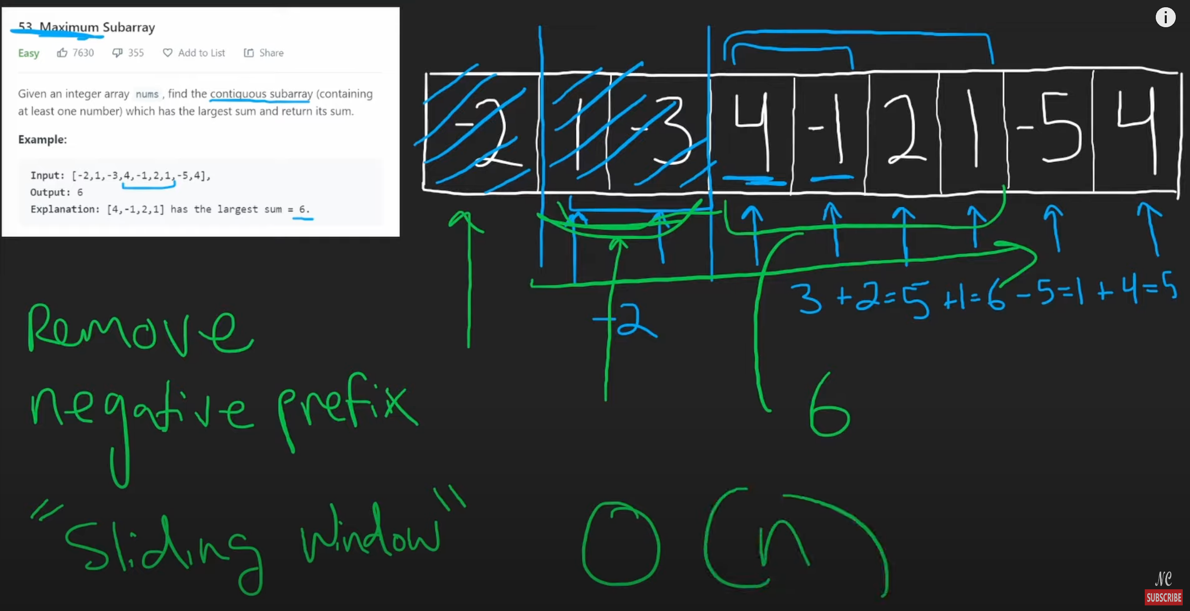 53. Maximum Subarray
Easy 7630 355 Add to List Share
Given an integer array nums, find the contiguous subarray (containing
at least one number) which has the largest sum and return its sum.
Example:
Input: [-2,1,-3,4,-1,2,1,-5,4],
Output: 6
Explanation: [4,-1,2,1] has the largest sum = 6.
i
-2 1 -3 4 -1 2 1 -5 4
3 +2=5 +1=6 -5=1 +4=5
-2
Remove
negative prefix
6
"Sliding window"
O(n)
NC
SUBSCRIBE